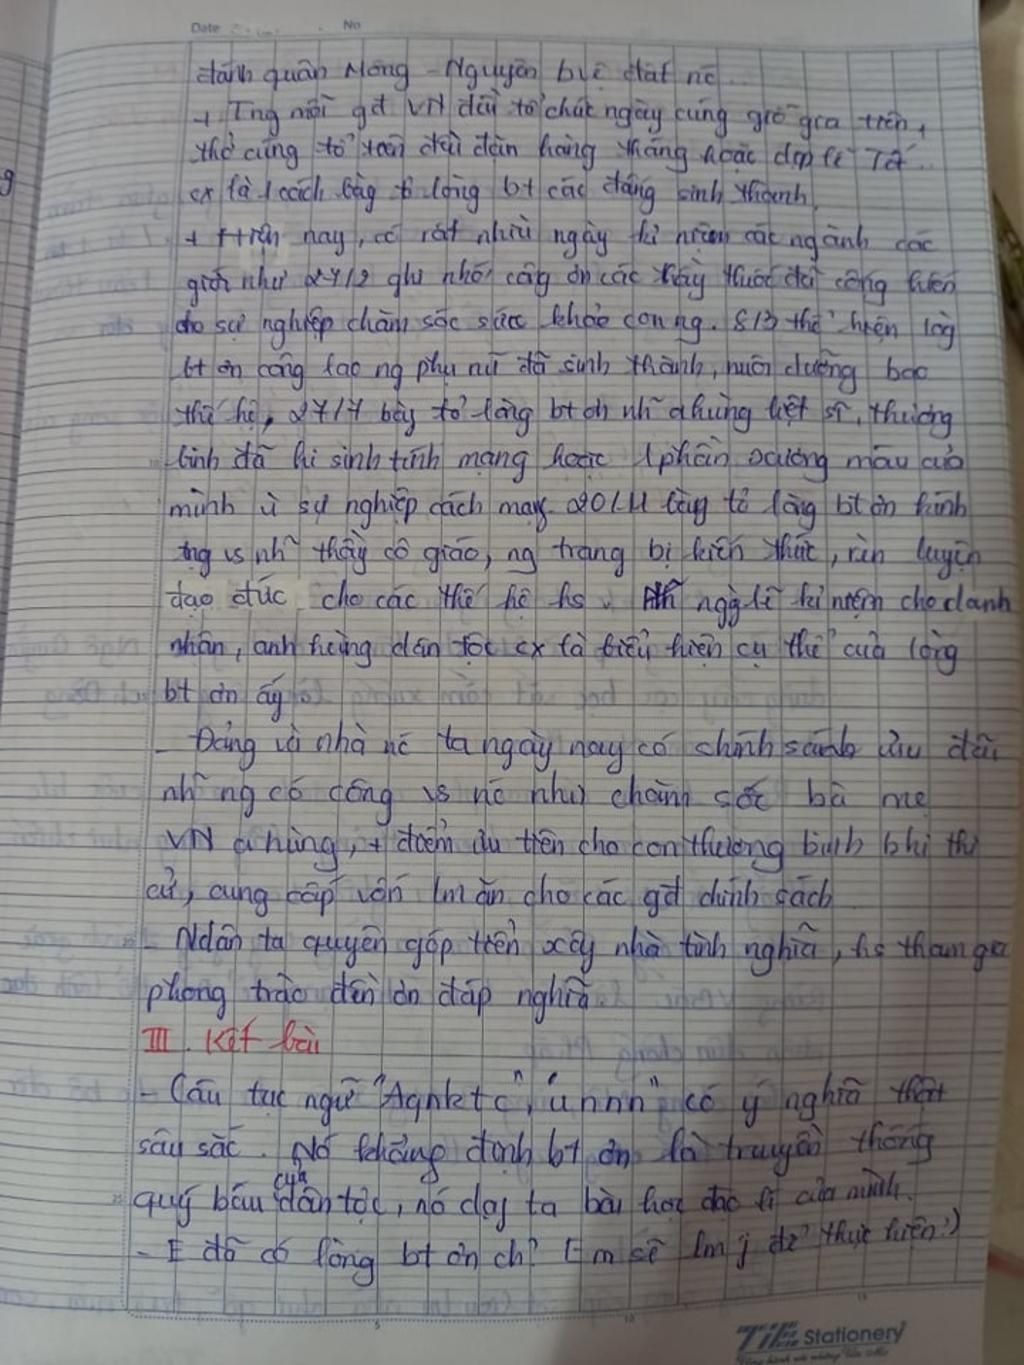 Date No
đánh quân Mông - Nguyên bvệ đất nc
+ Tng mỗi gđ VN đều tổ chức ngày cúng giỗ gia tiên,
thờ cúng tổ tiên đều đặn hàng tháng hoặc dịp lễ Tết
cx là 1 cách bày tỏ lòng bt các đấng sinh thành
+ Hiện nay, có rất nhìu ngày kỉ niệm các ngành các
giới như 27/2 ghi nhớ công ơn các thầy thuốc đã cống hiến
cho sự nghiệp chăm sóc sức khỏe con ng. 8/3 thể hiện lòg
bt ơn công lao ng phụ nữ đã sinh thành, nuôi dưỡng bao
thế hệ, 27/7 bày tỏ lòng bt ơn nhữ a hùng liệt sĩ, thương
binh đã hi sinh tính mạng hoặc 1 phần xương máu của
mình vì sự nghiệp cách mạng 20/11 bày tỏ lòg bt ơn kính
tng vs nhữ thầy cô giáo, ng trang bị kiến thức, rèn luyện
đạo đức cho các thế hệ hs. Nhữ ngày lễ kỉ niệm cho danh
nhân, anh hùng dân tộc cx là biểu hiện cụ thể của lòng
bt ơn ấy
- Đảng và nhà nc ta ngày nay có chính sách ưu đãi
nhữ ng có công vs nc như chăm sóc bà mẹ
VN a hùng, + điểm ưu tiên cho con thương binh khi thi
cử, cung cấp vốn lm ăn cho các gđ chính sách
- Ndân ta quyên góp tiền xây nhà tình nghĩa, hs tham gia
phong trào đền ơn đáp nghĩa
III. Kết bài
- Câu tục ngữ "Aqnktc", "unnn" có ý nghĩa thật
sâu sắc. Nó khẳng định bt ơn là truyền thống
quý báu của dân tộc, nó dạy ta bài học đạo lí của mình.
- E đã có lòng bt ơn ch? Em sẽ lm j để thực hiện?)
5 10 15
25
TiE Stationery